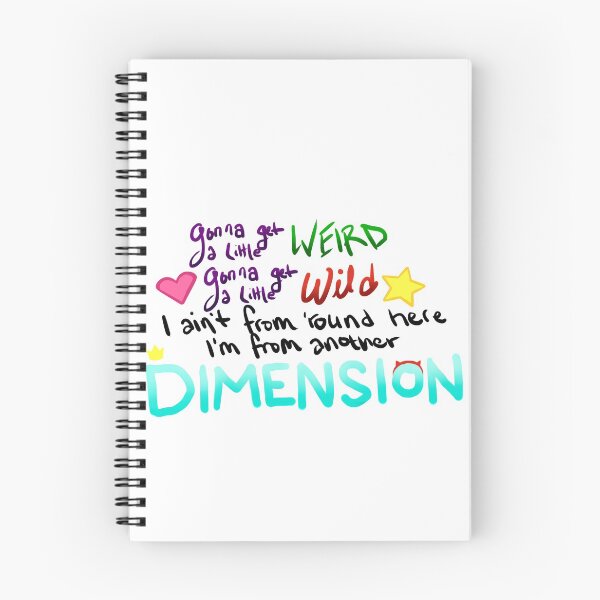 gonna get
a little WEIRD
gonna get
a little Wild
I ain't from 'round here
I'm from another
DIMENSION